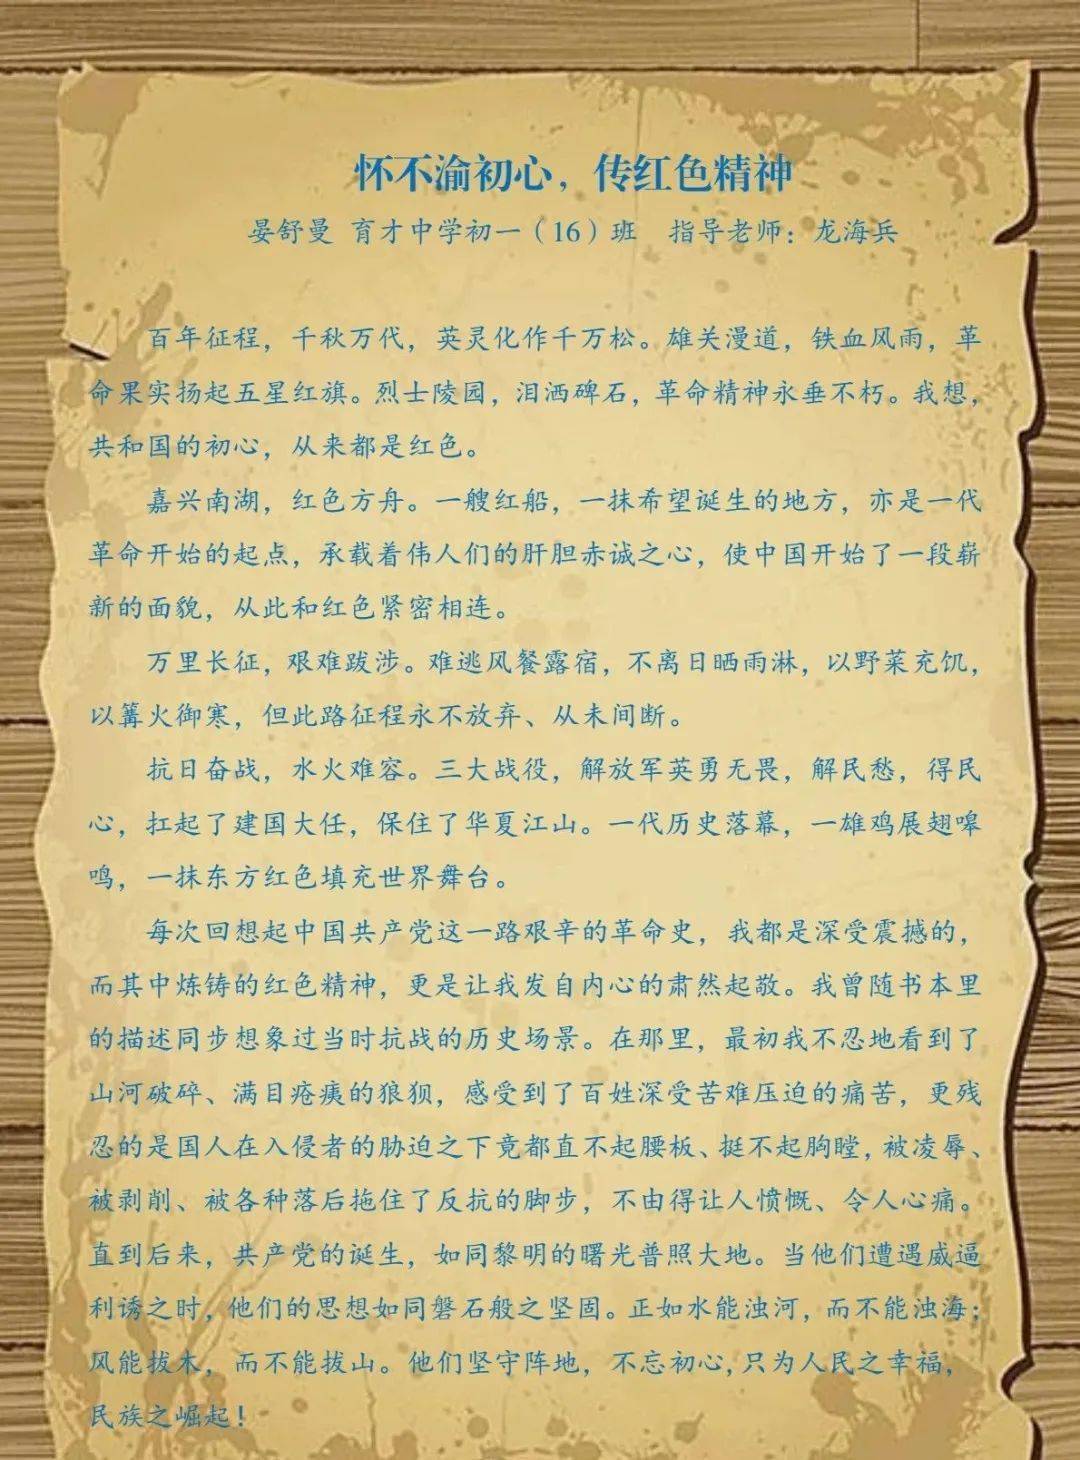 怀不渝初心，传红色精神
晏舒曼 育才中学初一（16）班 指导老师：龙海兵
百年征程，千秋万代，英灵化作千万松。雄关漫道，铁血风雨，革
命果实扬起五星红旗。烈士陵园，泪洒碑石，革命精神永垂不朽。我想，
共和国的初心，从来都是红色。
嘉兴南湖，红色方舟。一艘红船，一抹希望诞生的地方，亦是一代
革命开始的起点，承载着伟人们的肝胆赤诚之心，使中国开始了一段崭
新的面貌，从此和红色紧密相连。
万里长征，艰难跋涉。难逃风餐露宿，不离日晒雨淋，以野菜充饥，
以篝火御寒，但此路征程永不放弃、从未间断。
抗日奋战，水火难容。三大战役，解放军英勇无畏，解民愁，得民
心，扛起了建国大任，保住了华夏江山。一代历史落幕，一雄鸡展翅嗥
鸣，一抹东方红色填充世界舞台。
每次回想起中国共产党这一路艰辛的革命史，我都是深受震撼的，
而其中炼铸的红色精神，更是让我发自内心的肃然起敬。我曾随书本里
的描述同步想象过当时抗战的历史场景。在那里，最初我不忍地看到了
山河破碎、满目疮痍的狼狈，感受到了百姓深受苦难压迫的痛苦，更残
忍的是国人在入侵者的胁迫之下竟都直不起腰板、挺不起胸膛，被凌辱、
被剥削、被各种落后拖住了反抗的脚步，不由得让人愤慨、令人心痛。
直到后来，共产党的诞生，如同黎明的曙光普照大地。当他们遭遇威逼
利诱之时，他们的思想如同磐石般之坚固。正如水能浊河，而不能浊海；
风能拔木，而不能拔山。他们坚守阵地，不忘初心，只为人民之幸福，
民族之崛起！